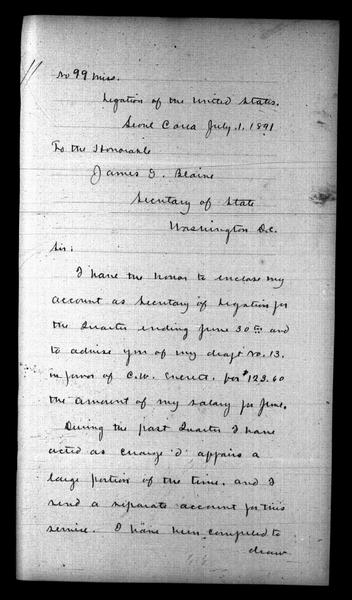 No 99 Misc.
Legation of the United States.
Seoul Corea July. 1. 1891
To the Honorable
James G. Blaine
Secretary of State
Washington D.C.
Sir:
I have the honor to enclose my
account as Secretary of Legation for
the Quarter ending June 30th and
to advise you of my draft No. 13.
in favor of C. W. Everett. for $123.60
the amount of my salary for June.
During the past Quarter I have
acted as Charge 'd' affairs a
large portion of the time. and I
send a separate account for this
service. I have been compelled to
draw